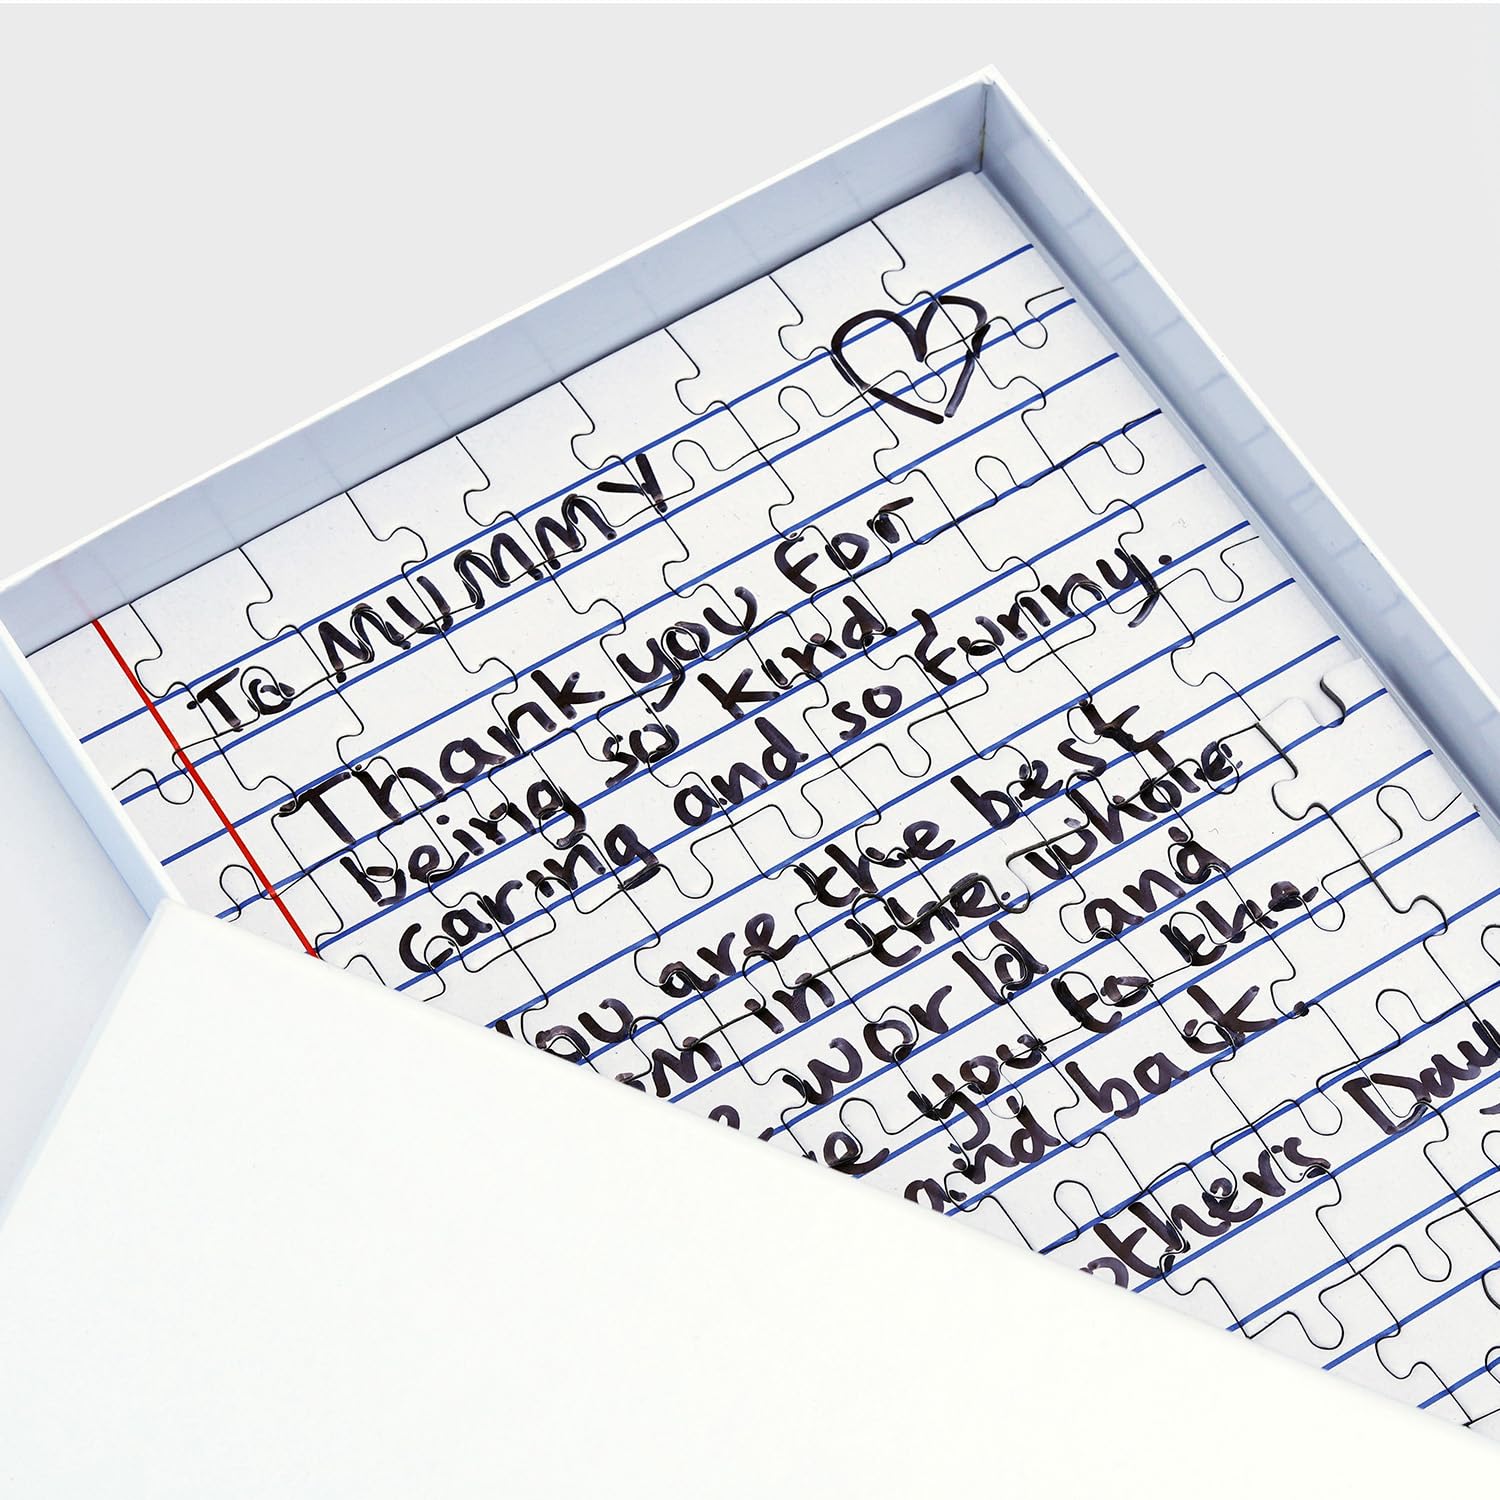 To MUMMY
Thank you for
being so kind
caring and so so funny.
You are the best
in the whole
world and
you to the
and back.
Day